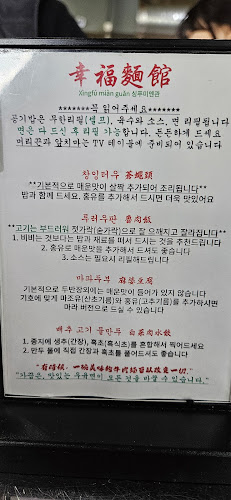 幸福麵館
Xìngfú miàn guǎn 싱푸미엔관
*******꼭 읽어주세요*******
공기밥은 무한리필(셀프), 육수와 소스, 면 리필됩니다
면은 다 드신 후 리필 가능합니다. 든든하게 드세요
머리끈과 앞치마는 TV 테이블에 준비되어 있습니다
창잉터우 蒼蠅頭
**기본적으로 매운맛이 살짝 추가되어 조리됩니다**
밥과 함께 드세요. 홍유를 추가해서 드시면 더욱 맛있어요
루러우판 魯肉飯
**고기는 부드러워 젓가락(숟가락)으로 잘 으깨지고 잘라집니다**
1. 비비는 것보다는 밥과 재료를 떠서 드시는 것을 추천드립니다
2. 홍유로 매운맛을 추가해서 드셔도 됩니다
3. 소스는 필요시 리필해드립니다
마파두부 麻婆豆腐
기본적으로 두반장외에는 매운맛이 들어가 있지 않습니다
기호에 맞게 마조유(산초기름)와 홍유(고추기름)를 추가하시어
마라 버전으로 드실 수 있습니다
배추 고기 물만두 白菜肉水餃
1. 종지에 생추(간장), 흑초(흑식초)를 혼합해서 찍어드세요
2. 만두 물에 직접 간장과 흑초를 풀어드셔도 좋습니다
"有時候, 一碗美味的牛肉麵可以改變一切."
"가끔은, 맛있는 우육면이 모든 것을 바꿀 수 있습니다"